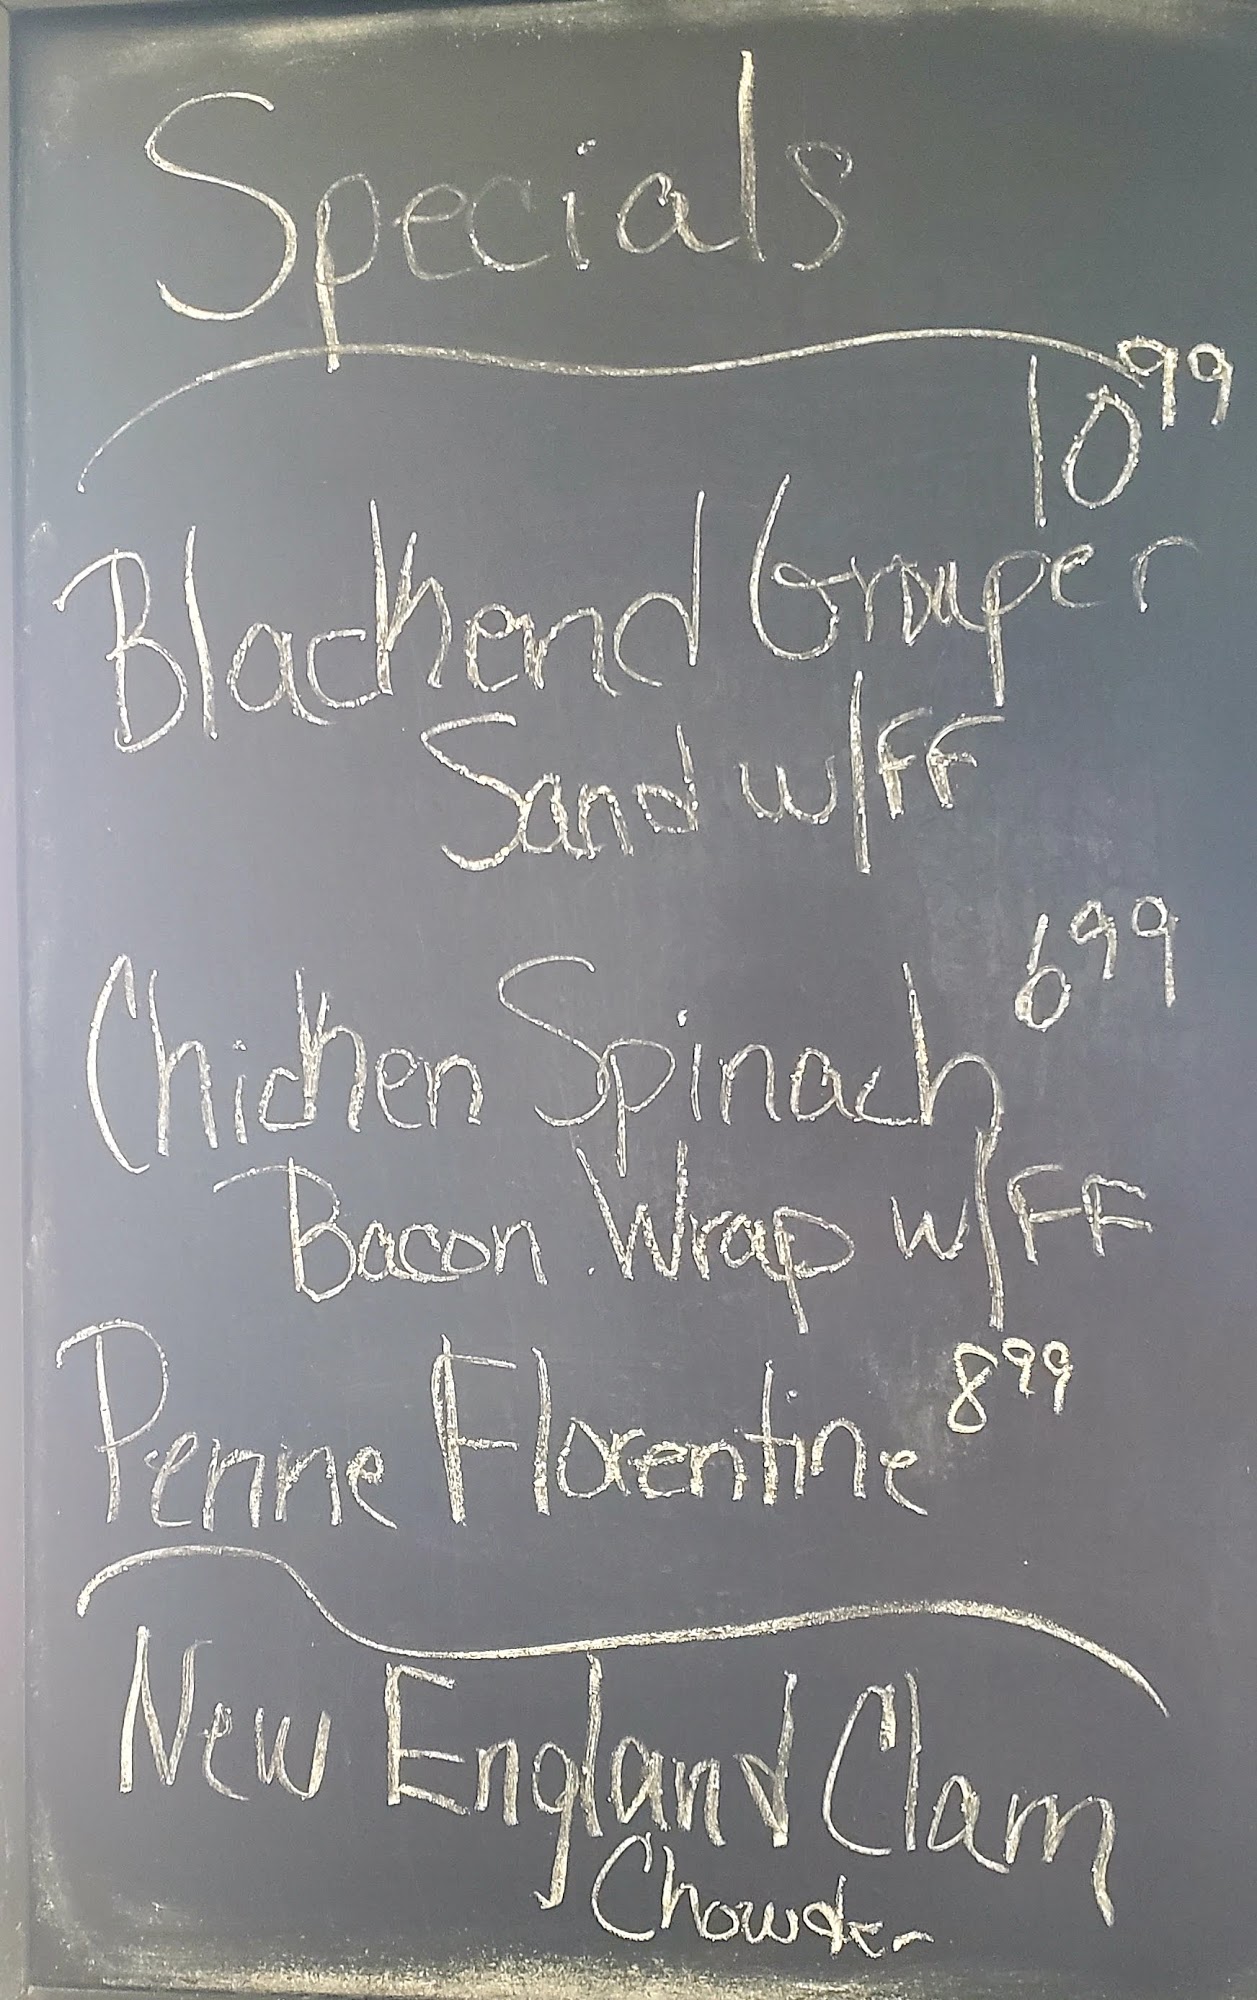 Specials
10 99
Blackend Grouper
Sand w/FF
6 99
Chicken Spinach
Bacon Wrap w/FF
Penne Florentine 8 99
New England Clam
Chowder